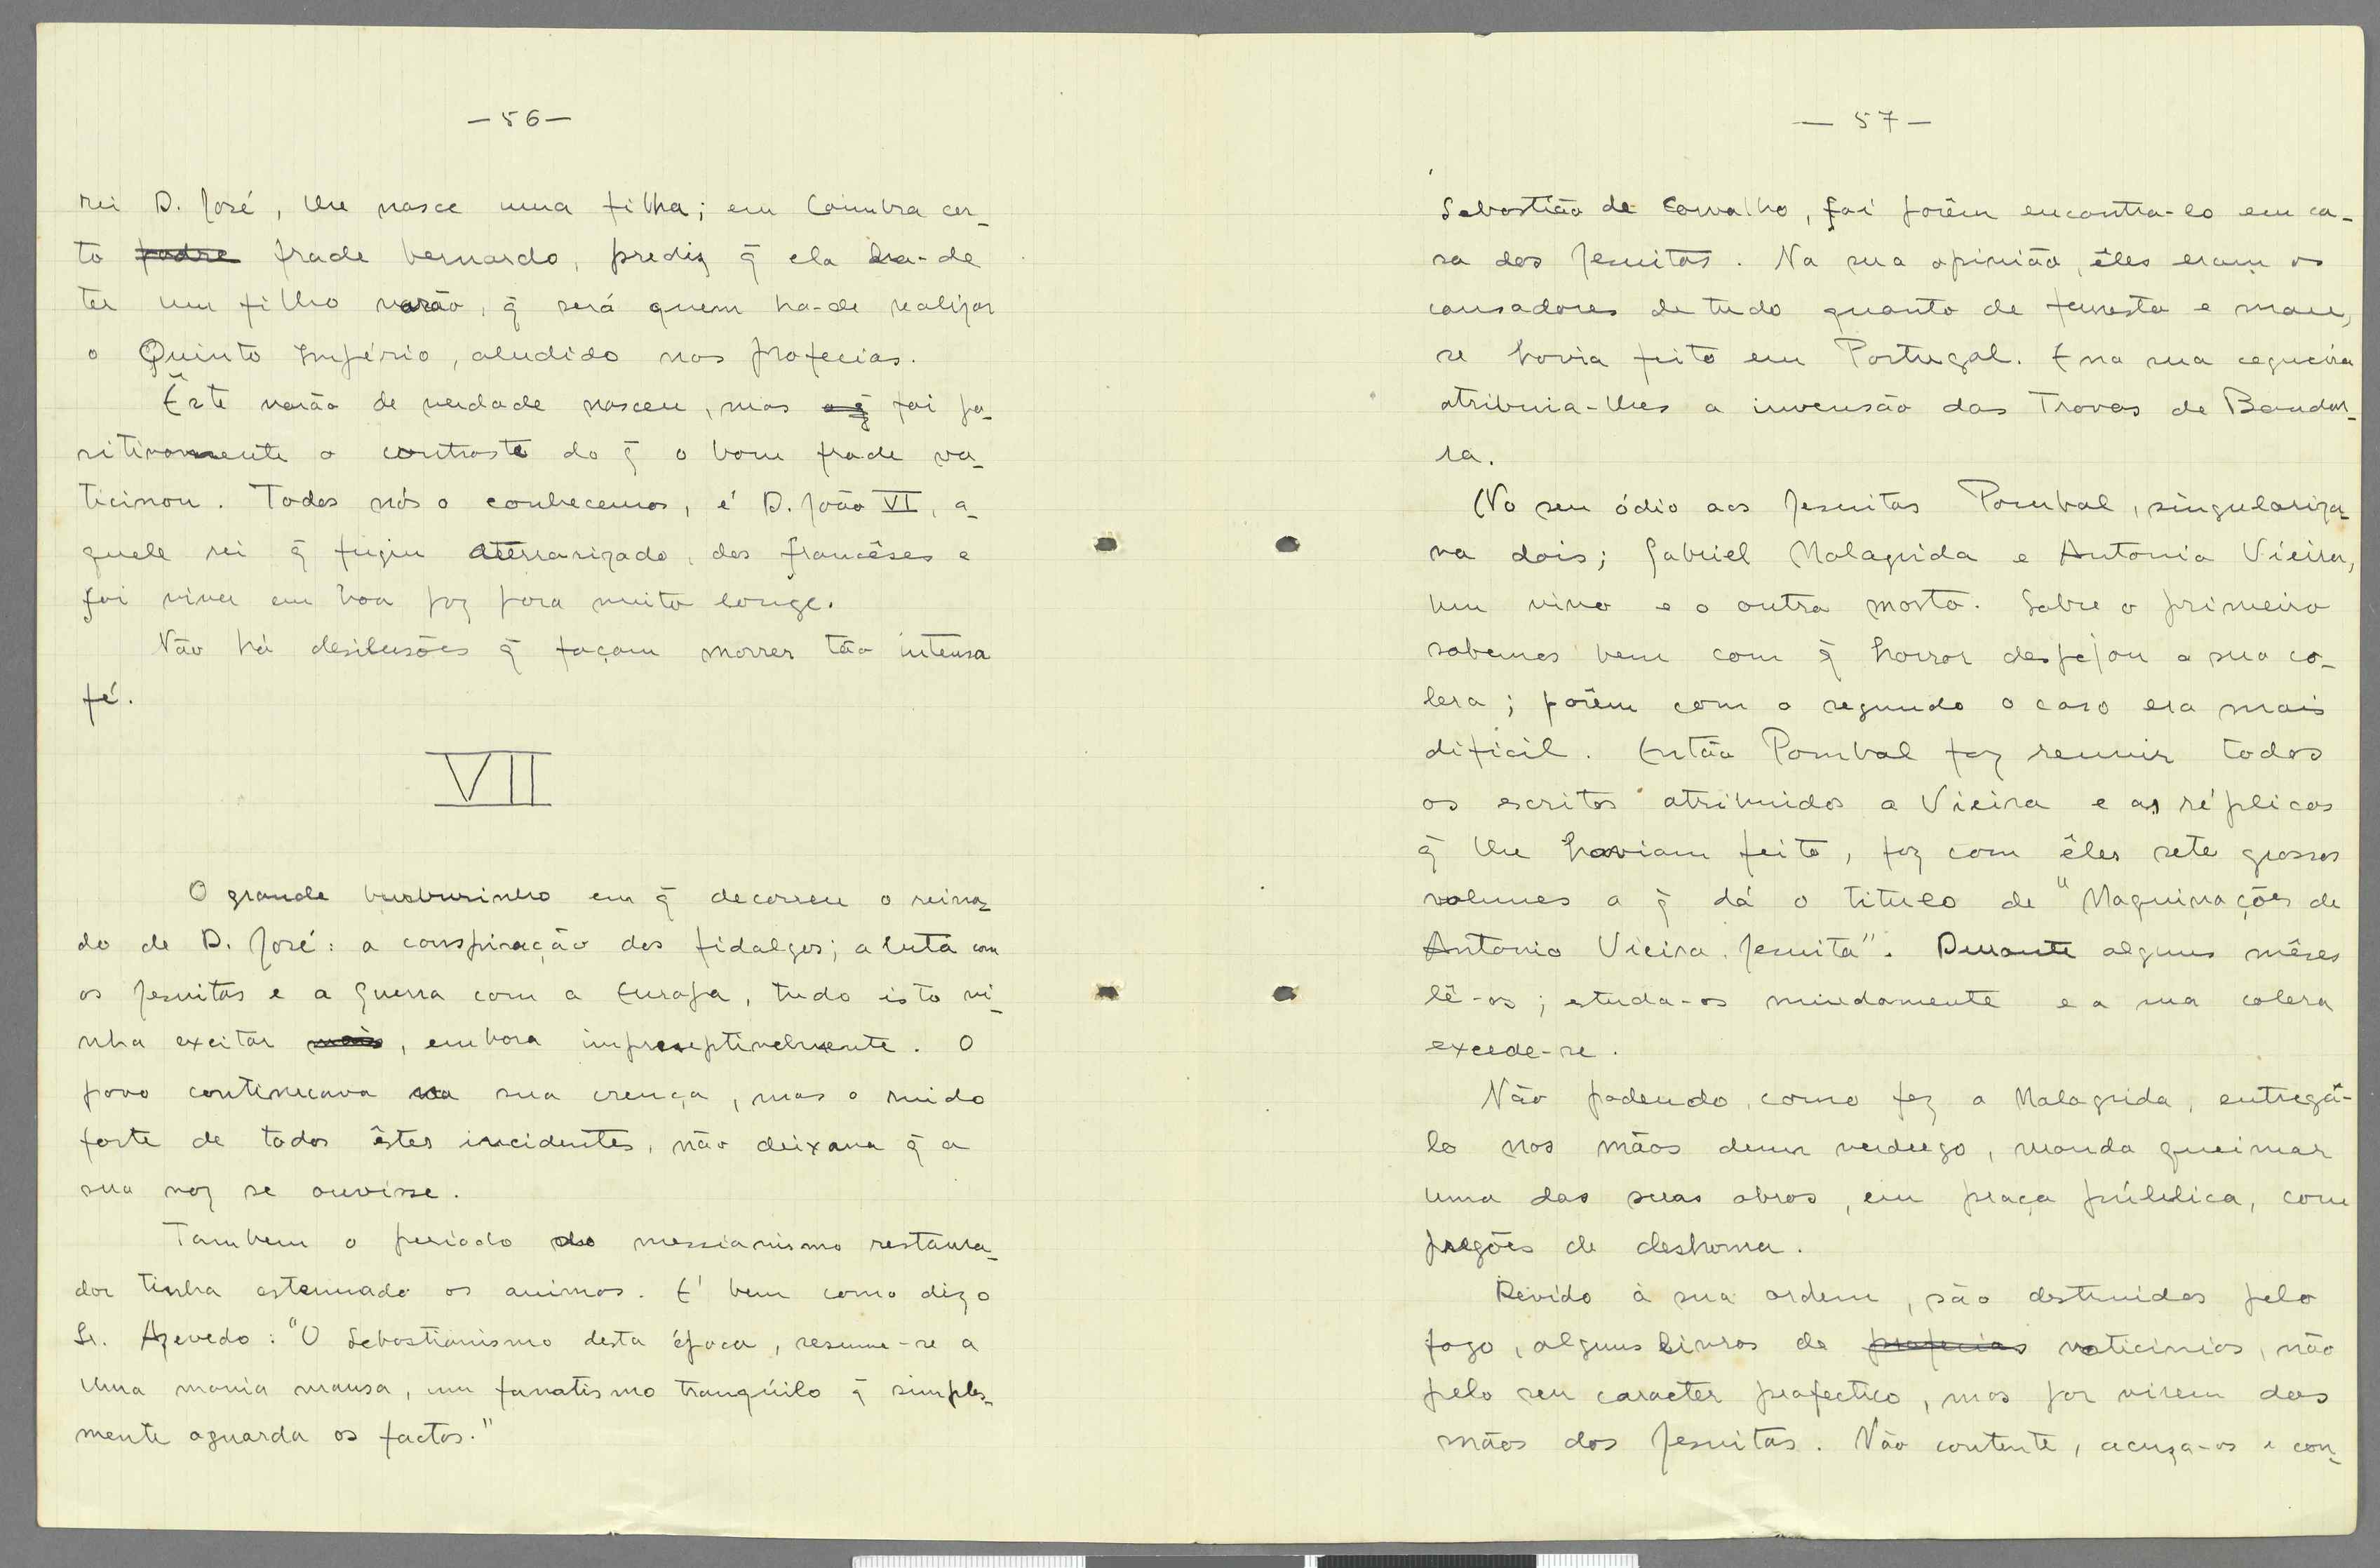 —56—
rei D. José, lhe nasce uma filha; em Coimbra cer-
to padre frade bernardo, prediz q̃ ela ha-de
ter um filho varão, q̃ será quem ha-de realizar
o Quinto Império, aludido nas profecias.
Êste varão de verdade nasceu, mas o q̃ foi po-
sitivamente o contraste do q̃ o bom frade va-
ticinou. Todos nós o conhecemos, é D. João VI, a-
quele rei q̃ fugiu aterrarizado, dos francêses e
foi viver em boa paz para muito longe.
Não há desilusões q̃ façam morrer tão intensa
fé.
VII
O grande burburinho em q̃ decorreu o reina-
do de D. José: a conspiração dos fidalgos; a luta com
os Jesuitas e a guerra com a Europa, tudo isto vi-
nha excitar mais, embora impreseptivelmente. O
povo continuava na sua crença, mas o ruido
forte de todos êstes incidentes, não deixava q̃ a
sua voz se ouvisse.
Tambem o periodo do messianismo restaura-
dor tinha estenuado os animos. E' bem como diz o
Sr. Azevedo: "O Sebastianismo desta época, resume-se a
uma mania mansa, um fanatismo tranqúilo q̃ simples-
mente aguarda os factos."
— 57 —
Sebastião de Carvalho, foi porêm encontra-lo em ca-
sa dos Jesuitas. Na sua opinião, êles eram os
causadores de tudo quanto de funesto e mau,
se havia feito em Portugal. E na sua cegueira
atribuia-lhes a invensão das Trovas de Bandar-
ra.
No seu ódio aos Jesuitas Pombal, singulariza-
va dois; Gabriel Malagrida e Antonio Vieira,
um vivo e o outro morto. Sobre o primeiro
sabemos bem com q̃ horror despejou a sua co-
lera; porêm com o segundo o caso era mais
dificil. Então Pombal faz reunir todos
os escritos atribuidos a Vieira e as réplicas
q̃ lhe haviam feito, faz com êles sete grossos
volumes a q̃ dá o titulo de "Maquinações de
Antonio Vieira Jesuita". Durante alguns mêses
lê-os; estuda-os miudamente e a sua colera
excede-se.
Não podendo, como fez a Malagrida, entregá-
lo nas mãos dum verdugo, manda queimar
uma das suas obras, em praça pública, com
pregões de deshonra.
Devido à sua ordem, são destruidos pelo
fogo, alguns livros de profecias vaticinios, não
pelo seu caracter profectico, mas por virem das
mãos dos Jesuitas. Não contente, acuza-os e con-